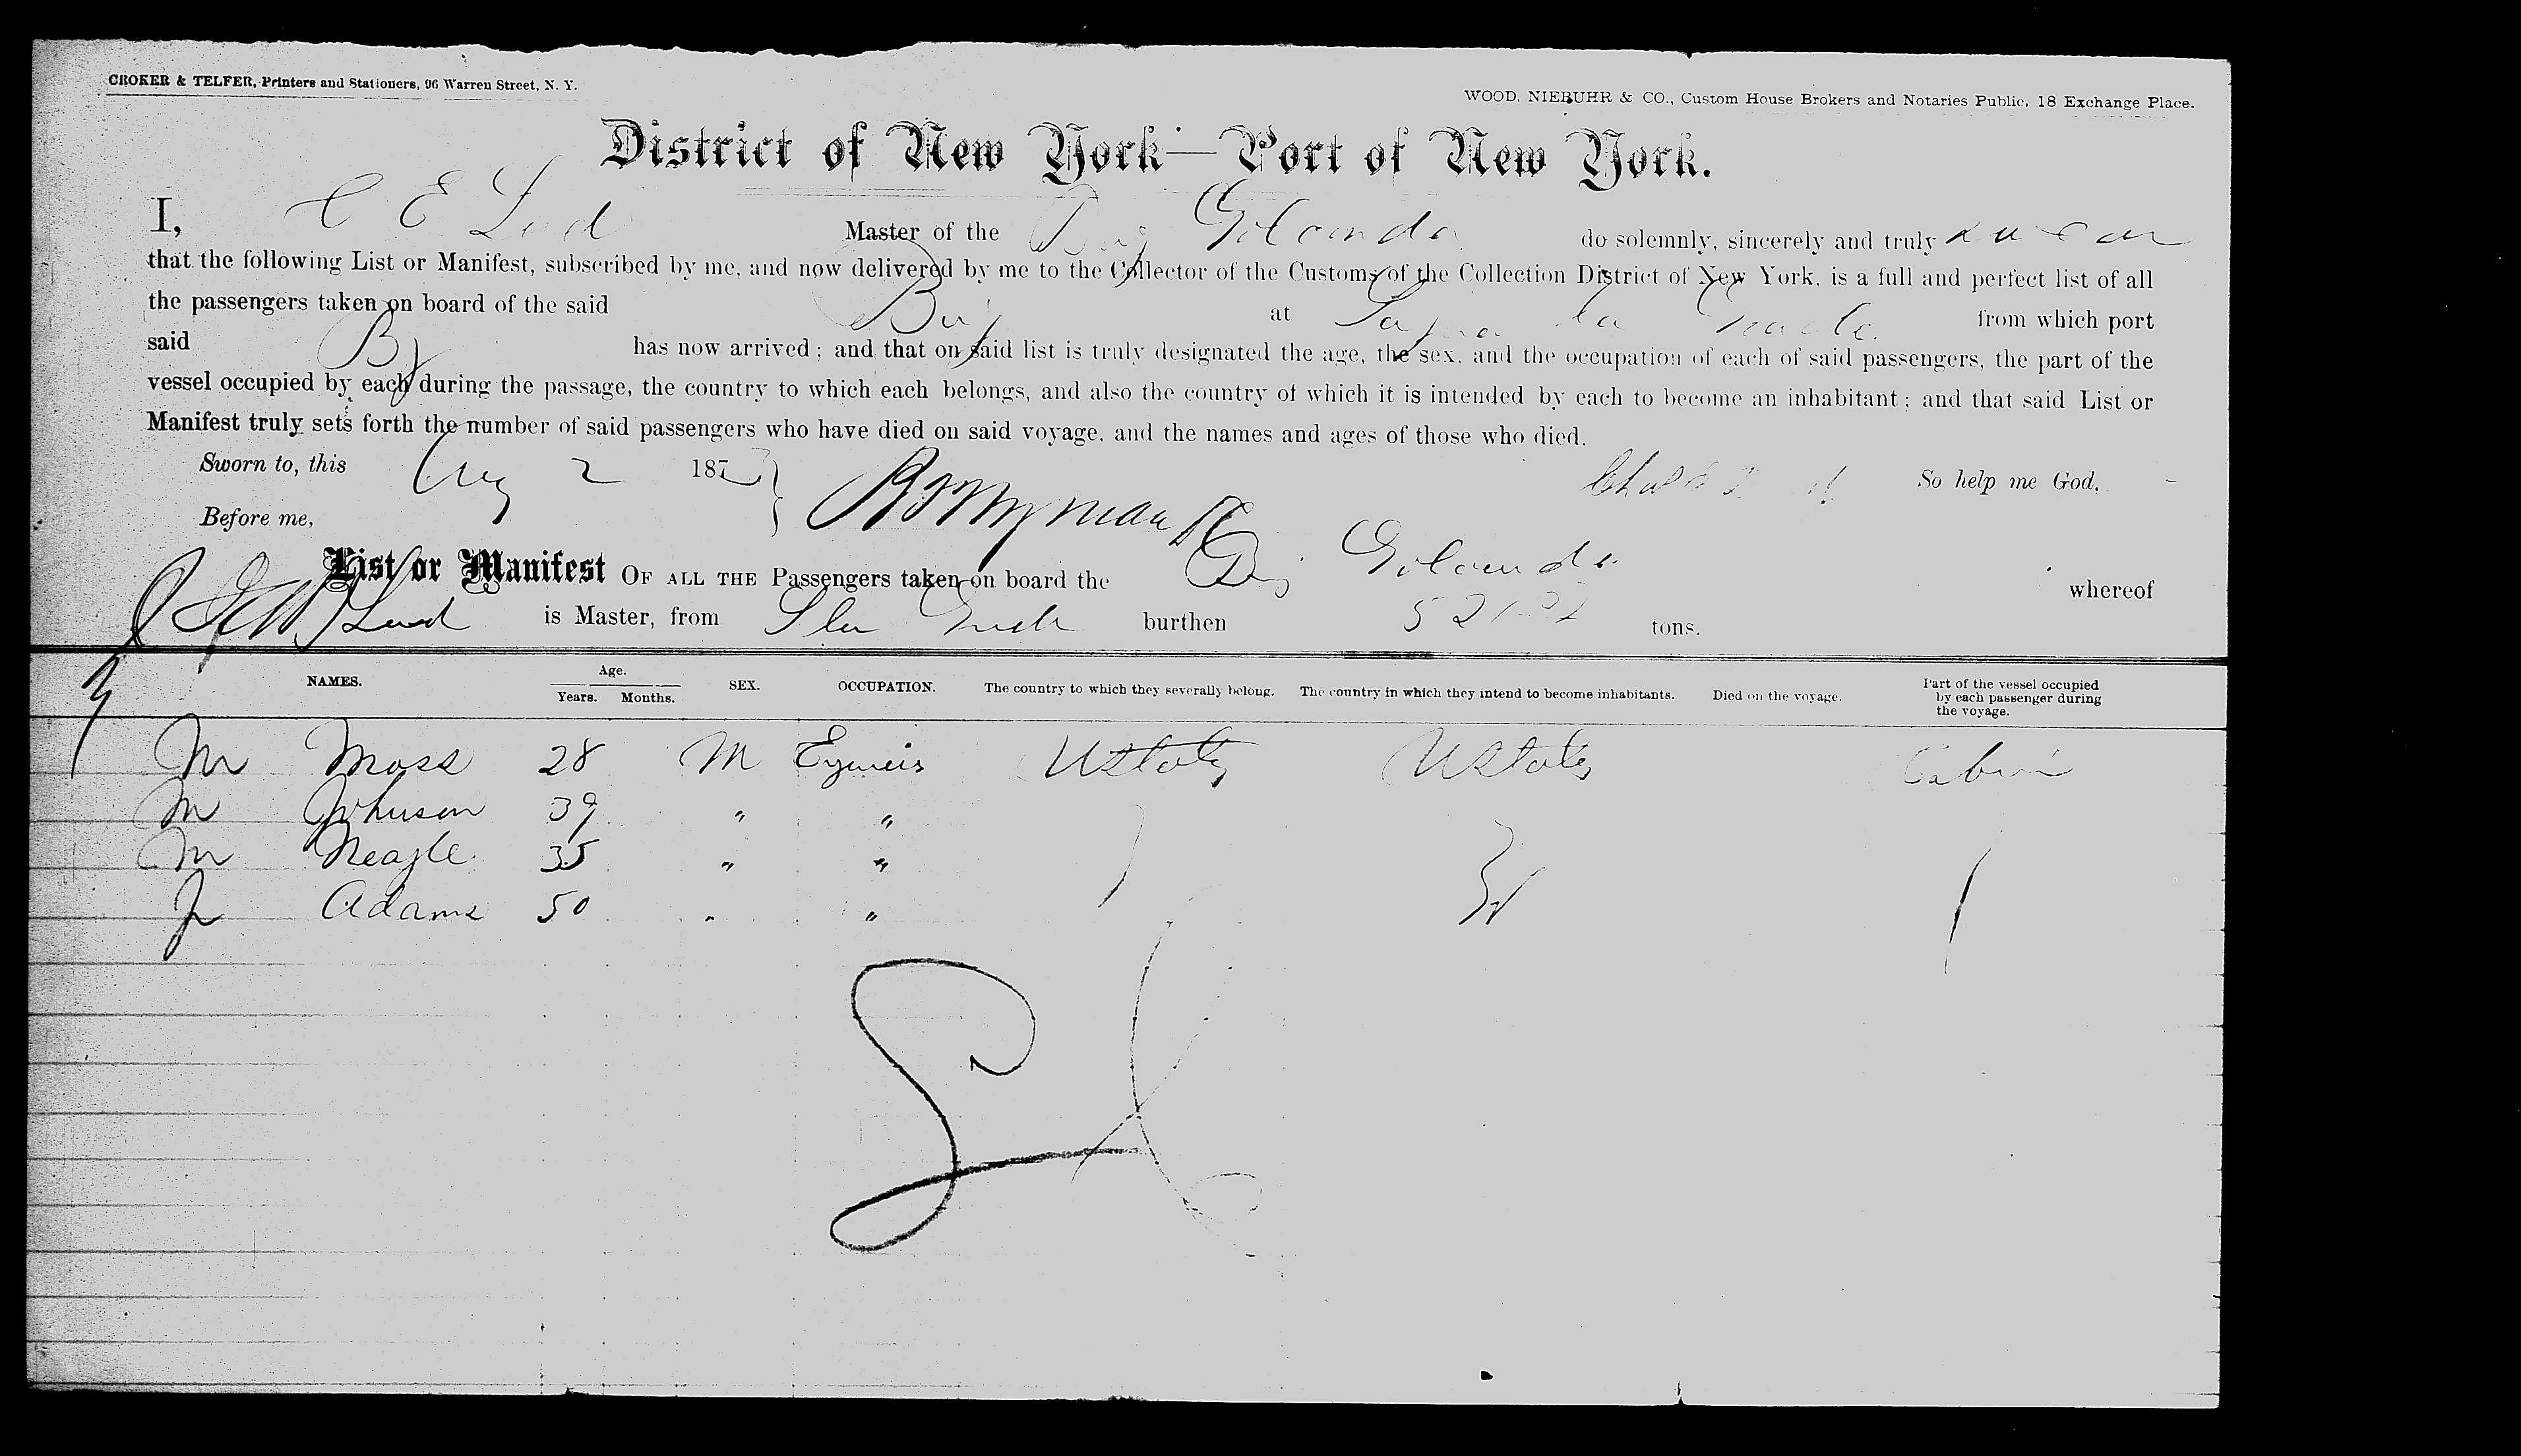 CROKER & TELFER, Printers and Stationers, 96 Warren Street, N. Y.
WOOD, NIEBUHR & CO., Custom House Brokers and Notaries Public, 18 Exchange Place.
District of New York—Port of New York.
I, C E Master of the Brig do solemnly, sincerely and truly swear
that the following List or Manifest, subscribed by me, and now delivered by me to the Collector of the Customs of the Collection District of New York, is a full and perfect list of all
the passengers taken on board of the said Brig at Sagua la from which port
said has now arrived; and that on said list is truly designated the age, the sex, and the occupation of each of said passengers, the part of the
vessel occupied by each during the passage, the country to which each belongs, and also the country of which it is intended by each to become an inhabitant; and that said List or
Manifest truly sets forth the number of said passengers who have died on said voyage, and the names and ages of those who died.
Sworn to, this Aug 2 187 So help me God,
Before me,
List or Manifest OF ALL THE Passengers taken on board the Brig whereof
is Master, from burthen tons.
NAMES. Age. Years. Months. SEX. OCCUPATION. The country to which they severally belong. The country in which they intend to become inhabitants. Died on the voyage. Part of the vessel occupied by each passenger during the voyage.
Mr Moss 28 M UStates UStates Cabin
M Johnson 39 " "
Mr Neagle 35 " "
Adams 50 " "